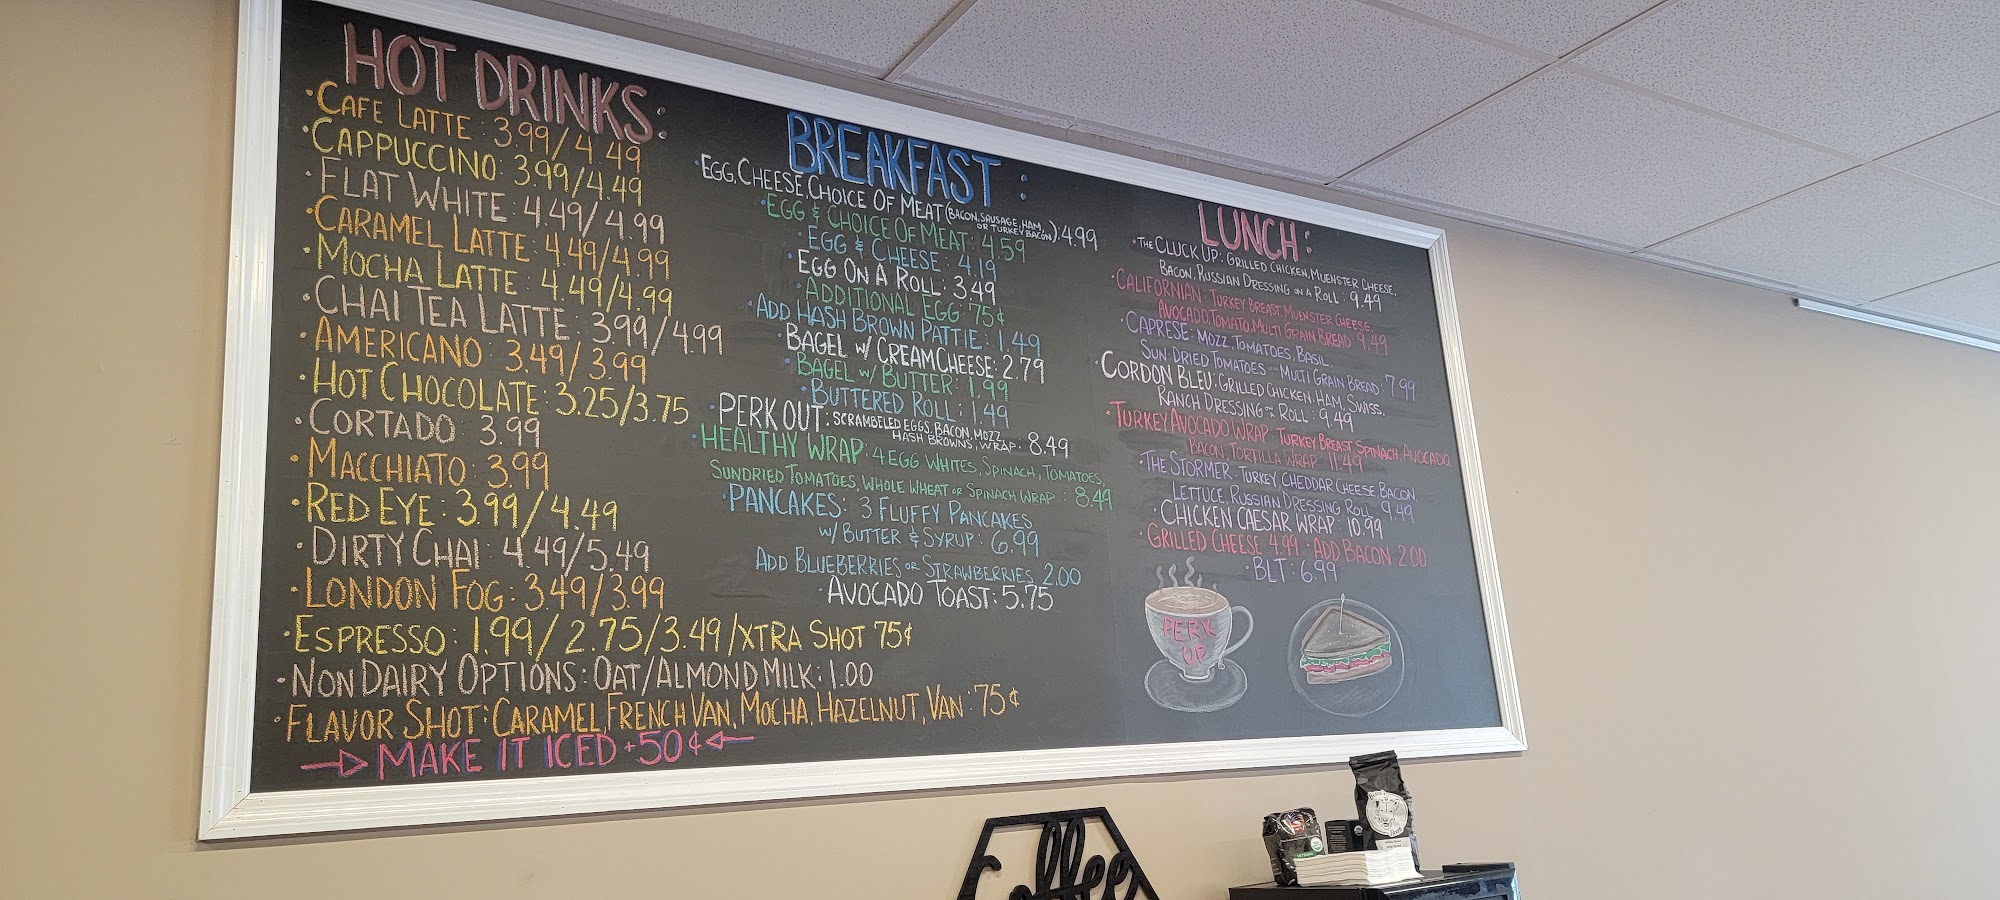 HOT DRINKS:
• CAFE LATTE: 3.99/4.49
• CAPPUCCINO: 3.99/4.49
• FLAT WHITE: 4.49/4.99
• CARAMEL LATTE: 4.49/4.99
• MOCHA LATTE: 4.49/4.99
• CHAI TEA LATTE: 3.99/4.99
• AMERICANO: 3.49/3.99
• HOT CHOCOLATE: 3.25/3.75
• CORTADO: 3.99
• MACCHIATO: 3.99
• RED EYE: 3.99/4.49
• DIRTY CHAI: 4.49/5.49
• LONDON FOG: 3.49/3.99
• ESPRESSO: 1.99/2.75/3.49/XTRA SHOT 75¢
• NON DAIRY OPTIONS: OAT/ALMOND MILK: 1.00
• FLAVOR SHOT: CARAMEL, FRENCH VAN, MOCHA, HAZELNUT, VAN: 75¢
→ MAKE IT ICED +50¢ ←
BREAKFAST:
• EGG, CHEESE, CHOICE OF MEAT (BACON, SAUSAGE, HAM,
OR TURKEY BACON): 4.99
• EGG & CHOICE OF MEAT: 4.59
• EGG & CHEESE: 4.19
• EGG ON A ROLL: 3.49
• ADDITIONAL EGG: 75¢
• ADD HASH BROWN PATTIE: 1.49
• BAGEL W/ CREAM CHEESE: 2.79
• BAGEL W/ BUTTER: 1.99
• BUTTERED ROLL: 1.49
• PERK OUT: SCRAMBELED EGGS, BACON, MOZZ,
HASH BROWNS, WRAP: 8.49
• HEALTHY WRAP: 4 EGG WHITES, SPINACH, TOMATOES,
SUNDRIED TOMATOES, WHOLE WHEAT OR SPINACH WRAP: 8.49
• PANCAKES: 3 FLUFFY PANCAKES
W/ BUTTER & SYRUP: 6.99
ADD BLUEBERRIES OR STRAWBERRIES 2.00
• AVOCADO TOAST: 5.75
LUNCH:
• THE CLUCK UP: GRILLED CHICKEN, MUENSTER CHEESE,
BACON, RUSSIAN DRESSING ON A ROLL: 9.49
• CALIFORNIAN: TURKEY BREAST, MUENSTER CHEESE,
AVOCADO, TOMATO, MULTI GRAIN BREAD: 9.49
• CAPRESE: MOZZ, TOMATOES, BASIL,
SUN DRIED TOMATOES ON MULTI GRAIN BREAD: 7.99
• CORDON BLEU: GRILLED CHICKEN, HAM, SWISS,
RANCH DRESSING ON A ROLL: 9.49
• TURKEY AVOCADO WRAP: TURKEY BREAST, SPINACH, AVOCADO,
BACON, TORTILLA WRAP 11.49
• THE STORMER: TURKEY, CHEDDAR CHEESE, BACON
LETTUCE, RUSSIAN DRESSING ROLL 9.49
• CHICKEN CAESAR WRAP: 10.99
• GRILLED CHEESE 4.99 • ADD BACON: 2.00
• BLT: 6.99
PERK
UP
Coffee